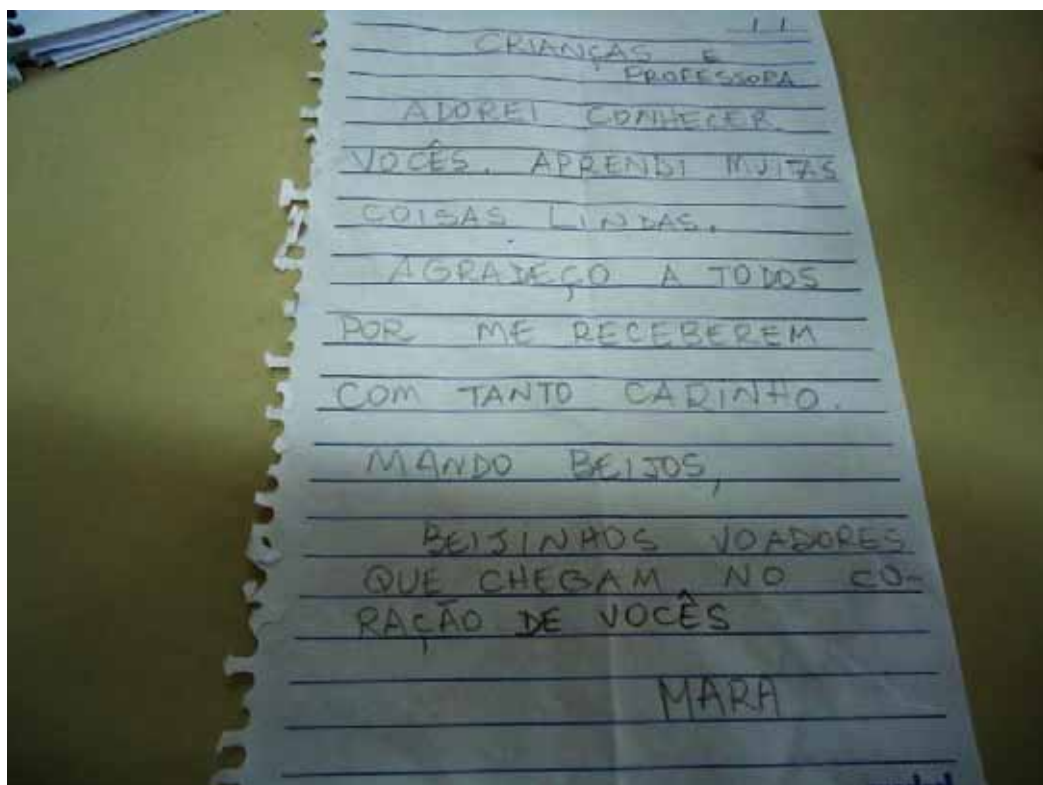 CRIANÇAS E
PROFESSORA
ADOREI CONHECER
VOCÊS. APRENDI MUITAS
COISAS LINDAS.
AGRADEÇO A TODOS
POR ME RECEBEREM
COM TANTO CARINHO.
MANDO BEIJOS,
BEIJINHOS VOADORES
QUE CHEGAM NO CO-
RAÇÃO DE VOCÊS
MARA